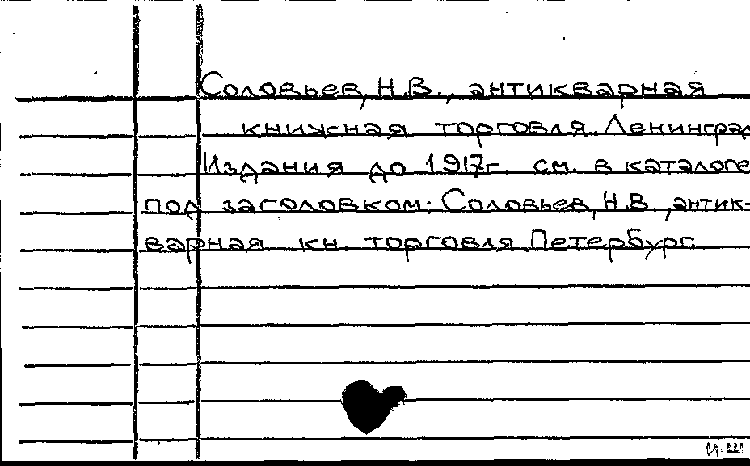 Соловьев, Н.В., антикварная
книжная торговля. Ленинград
Издания до 1917г. см. в каталоге
под заголовком: Соловьев, Н.В., антик-
варная кн. торговля. Петербург.